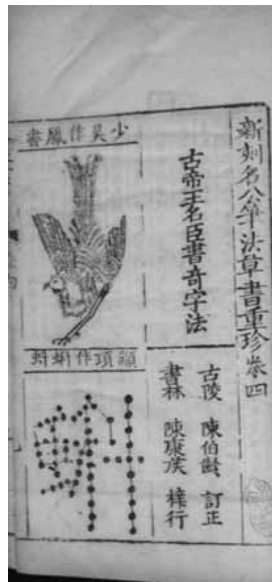 新刻名公筆法草書重珍卷四
古帝王名臣書奇字法
古陵　陳伯齡　訂正
書林　陳康　梓行
少昊作鳳書
顓頊作蝌蚪